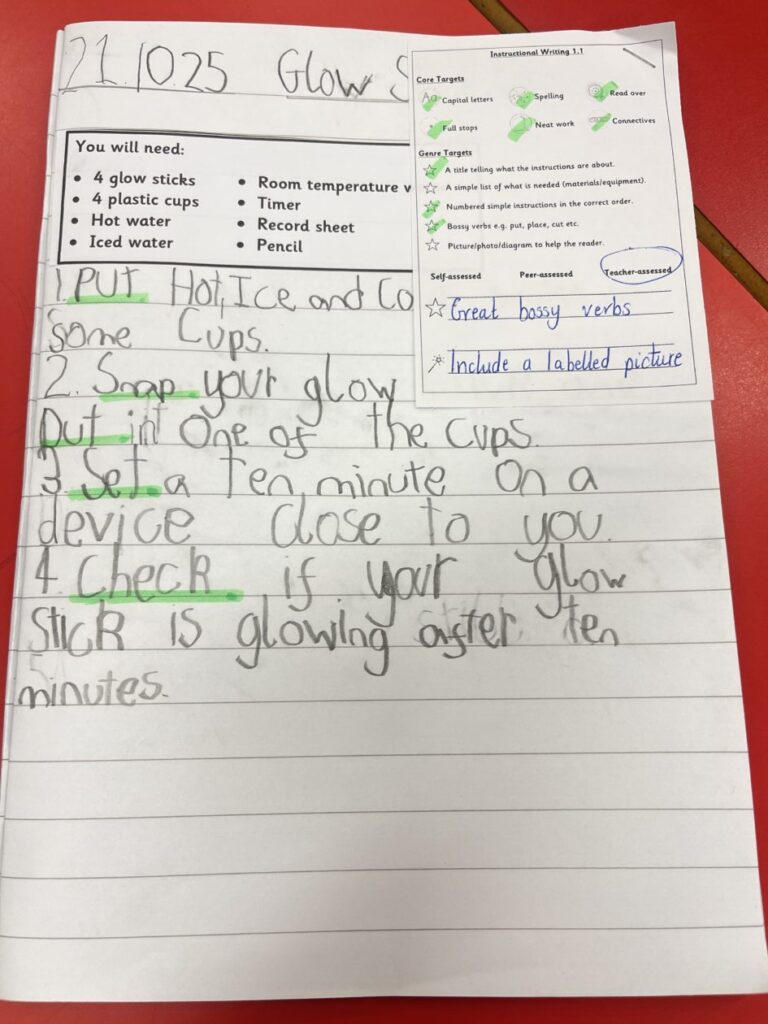 21.10.25 Glow S
You will need:
• 4 glow sticks
• 4 plastic cups
• Hot water
• Iced water
• Room temperature w
• Timer
• Record sheet
• Pencil
1. Put Hot, Ice and Co
Some Cups.
2. Snap your glow
put in one of the cups.
3. Set a ten minute on a
device close to you.
4. Check if your glow
stick is glowing after ten
minutes.
Instructional Writing 1.1
Core Targets
Aa Capital letters
Spelling
Read over
Full stops
Neat work
Connectives
Genre Targets
A title telling what the instructions are about.
A simple list of what is needed (materials/equipment).
Numbered simple instructions in the correct order.
Bossy verbs e.g. put, place, cut etc.
Picture/photo/diagram to help the reader.
Self-assessed Peer-assessed Teacher-assessed
Great bossy verbs
Include a labelled picture